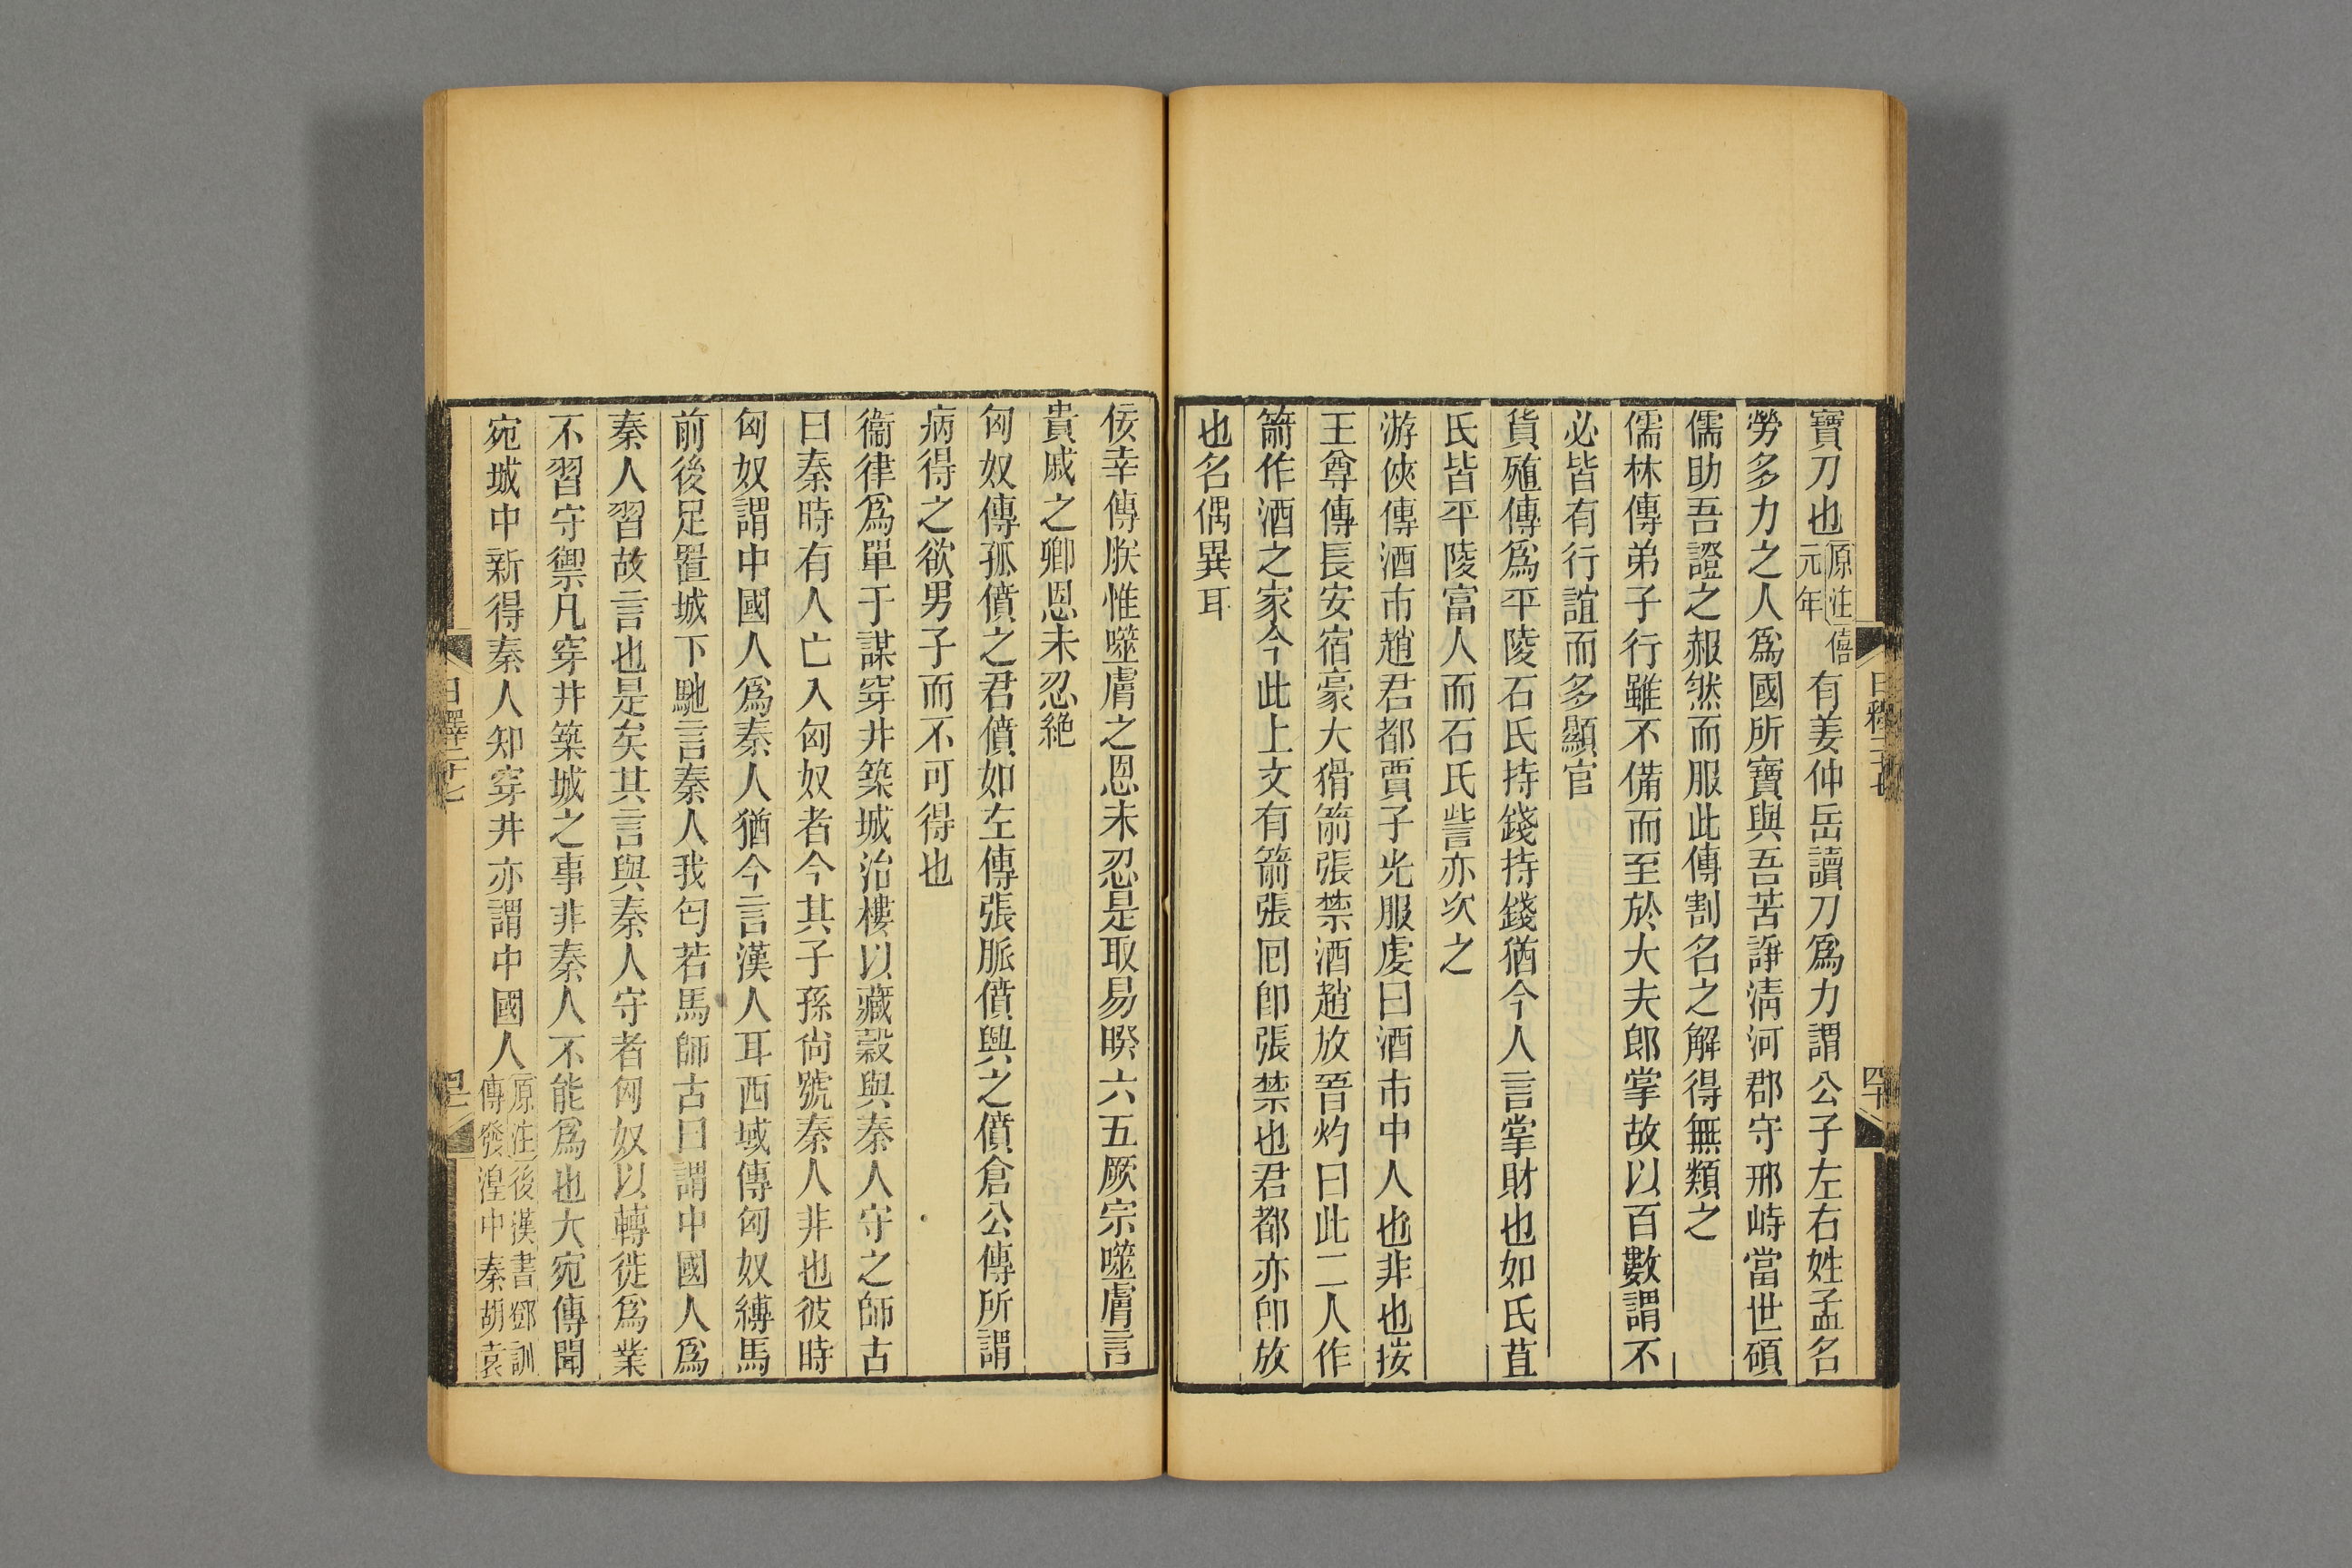 寶刀也原注僖元年有姜仲岳讀刀爲力謂公子左右姓孟名
勞多力之人爲國所寶與吾苦諍淸河郡守邢峙當世碩
儒助吾證之赧然而服此傳割名之解得無類之
儒林傳弟子行雖不備而至於大夫郎掌故以百數謂不
必皆有行誼而多顯官
貨殖傳爲平陵石氏持錢持錢猶今人言掌財也如氏苴
氏皆平陵富人而石氏訾亦次之
游俠傳酒市趙君都賈子光服虔曰酒市中人也非也按
王尊傳長安宿豪大猾箭張禁酒趙放晉灼曰此二人作
箭作酒之家今此上文有箭張囘卽張禁也君都亦卽放
也名偶異耳
佞幸傳朕惟噬膚之恩未忍是取易暌六五厥宗噬膚言
貴戚之卿恩未忍絶
匈奴傳孤僨之君僨如左傳張脈僨興之僨倉公傳所謂
病得之欲男子而不可得也
衞律爲單于謀穿井築城治樓以藏穀與秦人守之師古
曰秦時有人亡入匈奴者今其子孫尙號秦人非也彼時
匈奴謂中國人爲秦人猶今言漢人耳西域傳匈奴縛馬
前後足置城下馳言秦人我匄若馬師古曰謂中國人爲
秦人習故言也是矣其言與秦人守者匈奴以轉徙爲業
不習守禦凡穿井築城之事非秦人不能爲也大宛傳聞
宛城中新得秦人知穿井亦謂中國人原注後漢書鄧訓傳發湟中秦胡袁